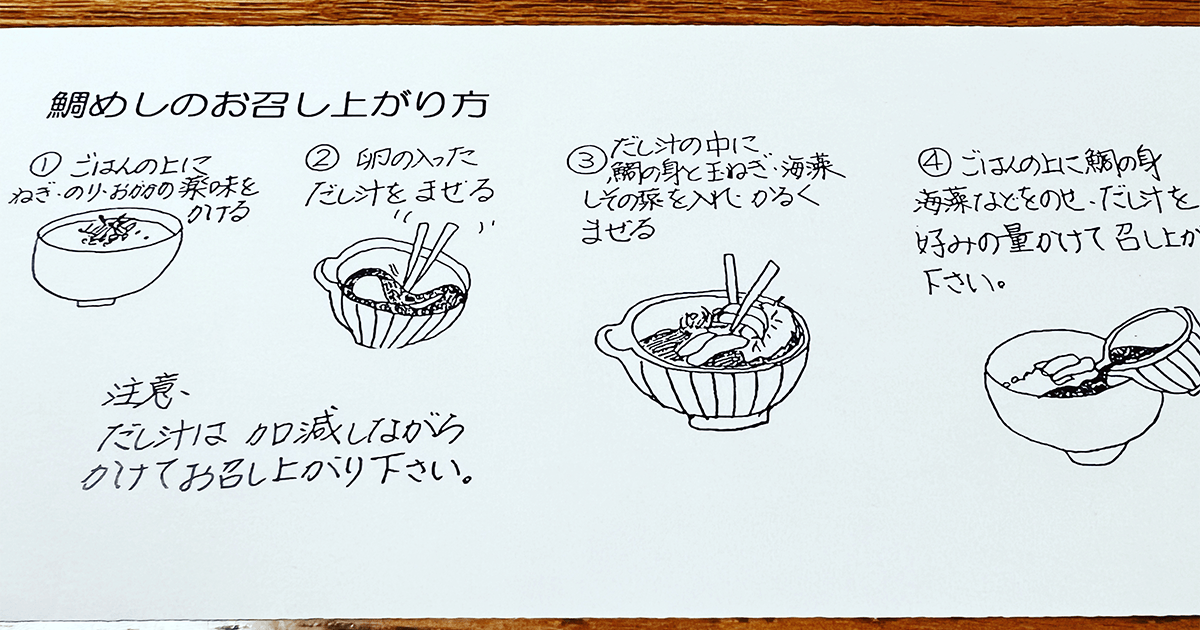 鯛めしのお召し上がり方
① ごはんの上に
ねぎ・のり・おかかの薬味を
かける
② 卵の入った
だし汁を まぜる
③ だし汁の中に
鯛の身と玉ねぎ・海藻
しその葉を入れ・かるく
まぜる
④ ごはんの上に鯛の身
海藻などをのせ、だし汁を
好みの量かけて召し上が
下さい。
注意、
だし汁は 加減しながら
かけてお召し上がり下さい。